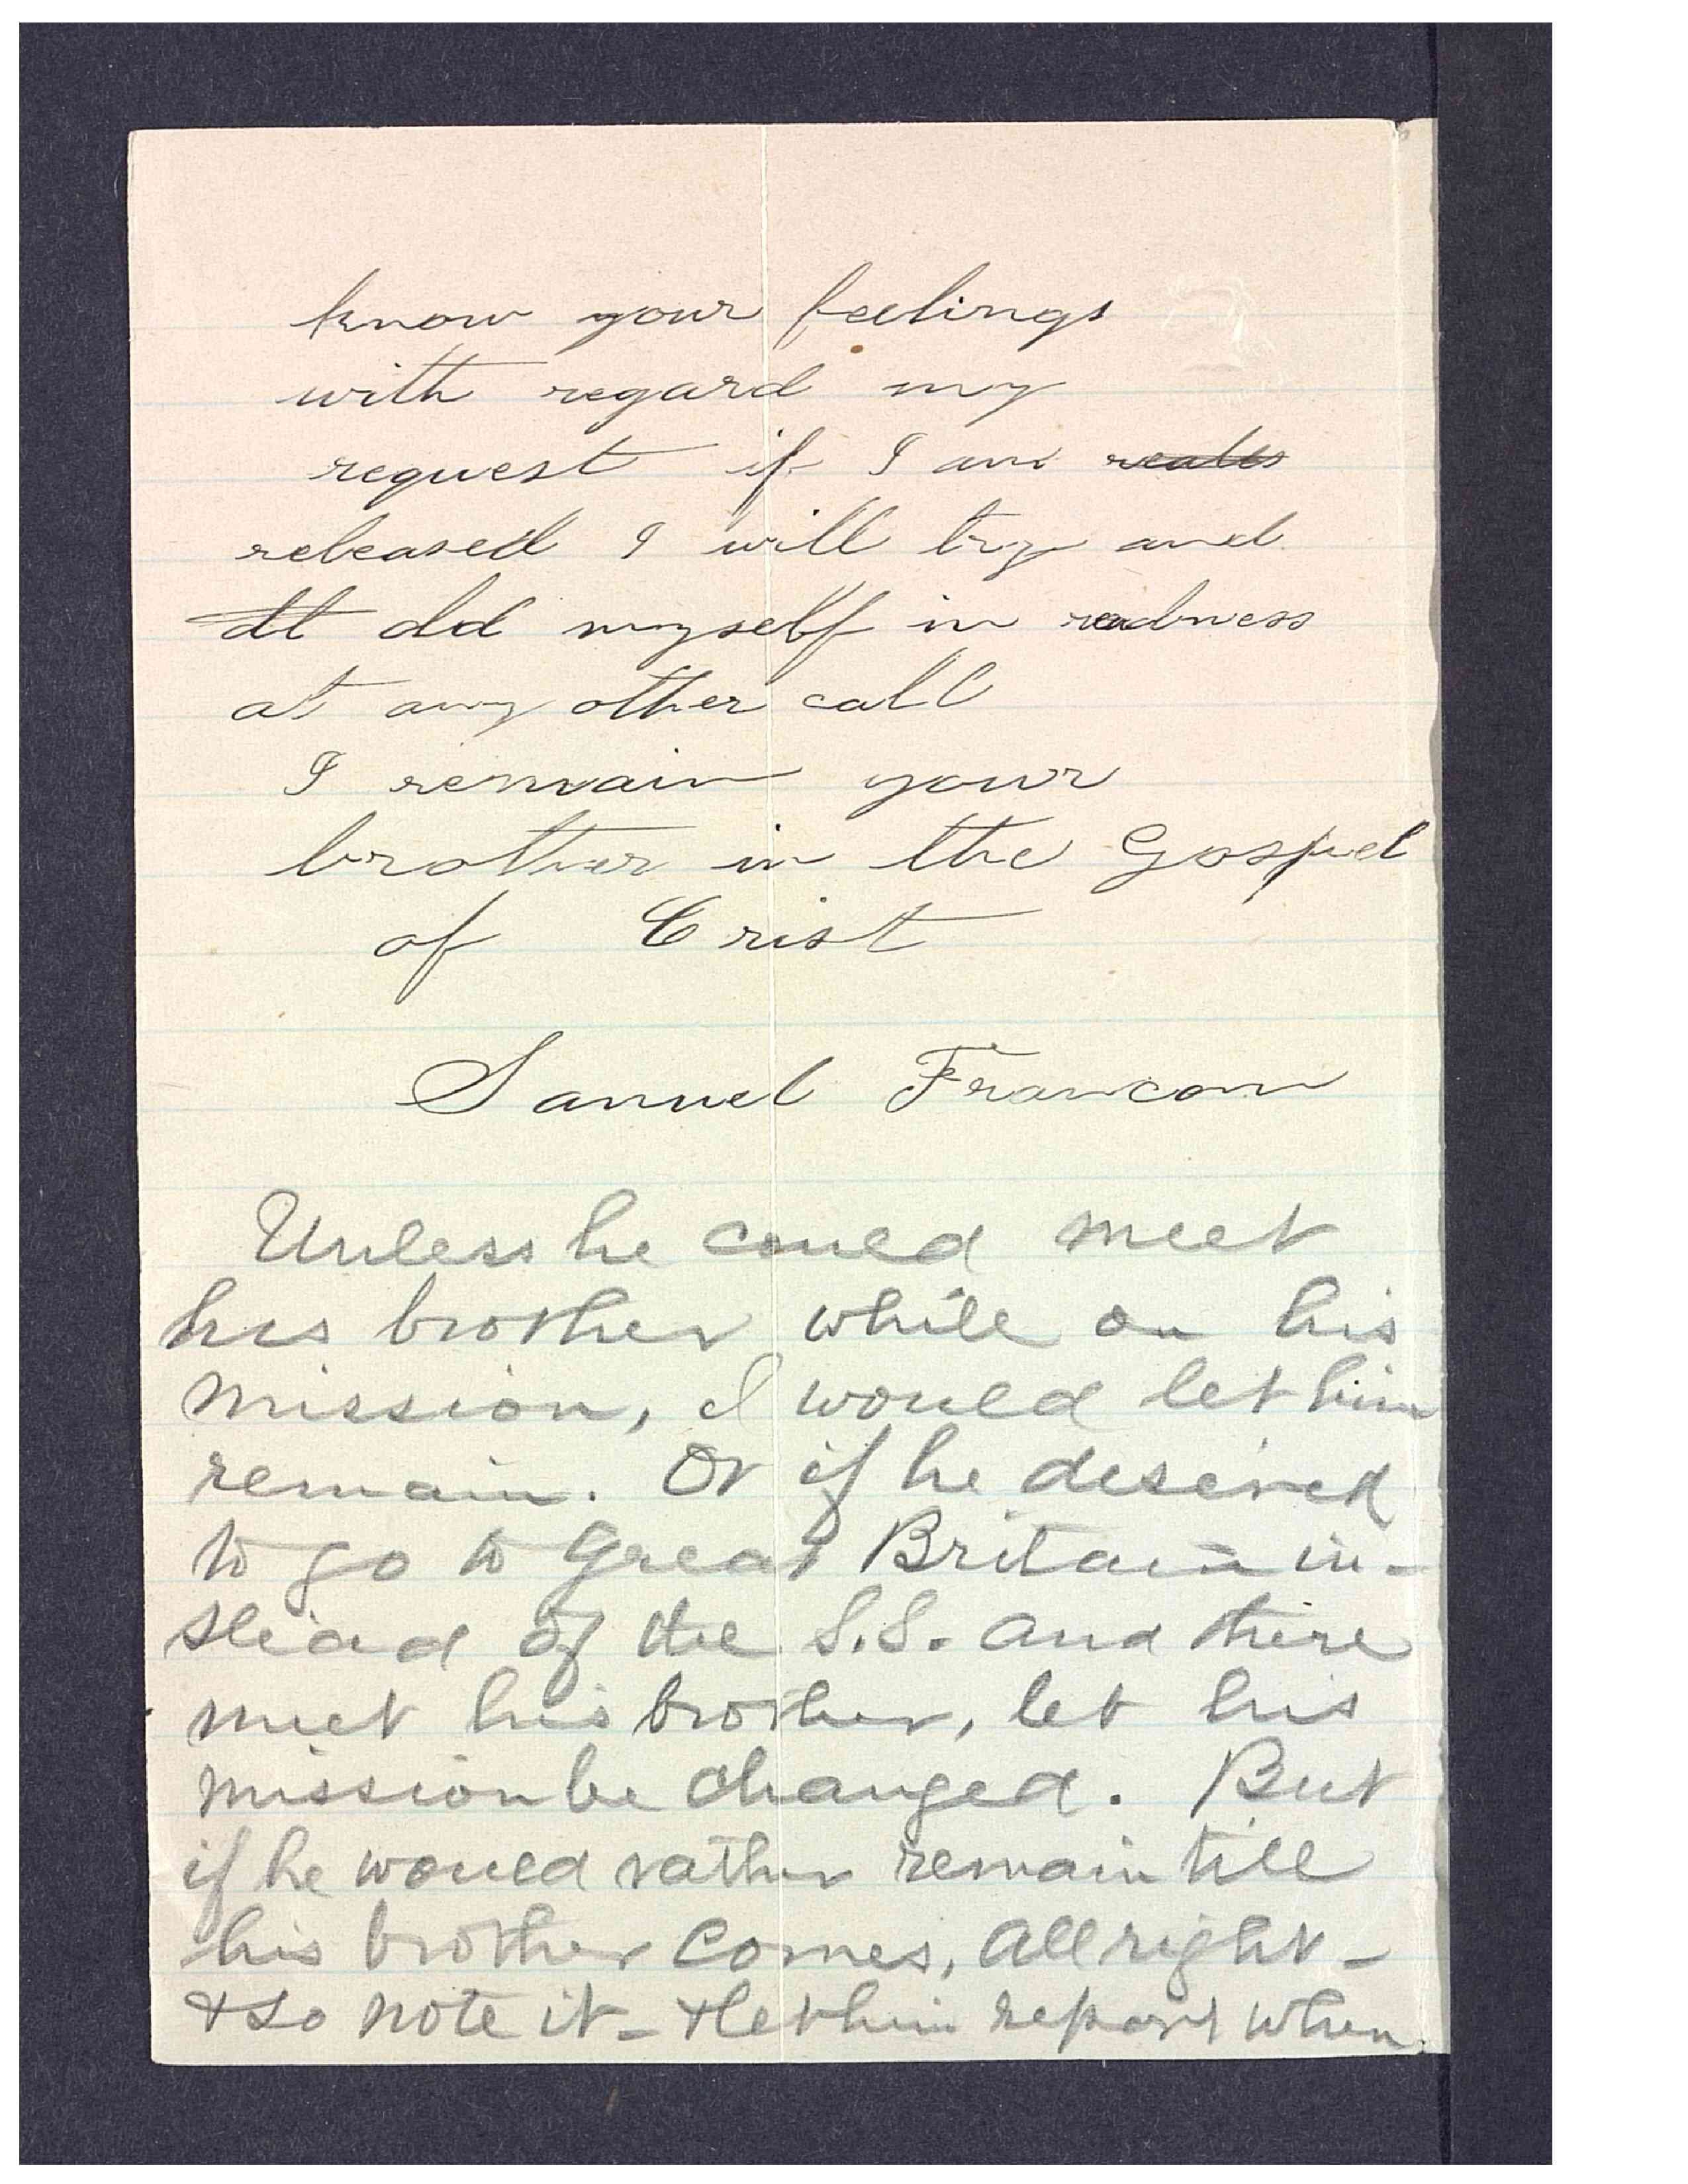 know your feelings
with regard my
request if I am reales
released I will try and
tt old myself in readness
at any other call
I remain your
brother in the Gospel
of Crist
Samuel Francom
Unless he could meet
his brother while on his
mission, I would let him
remain. Or if he desired
to go to Great Britain in-
stead of the S.S. and there
meet his brother, let his
mission be changed. But
if he would rather remain till
his brother comes, all right -
& so note it - & let him report when